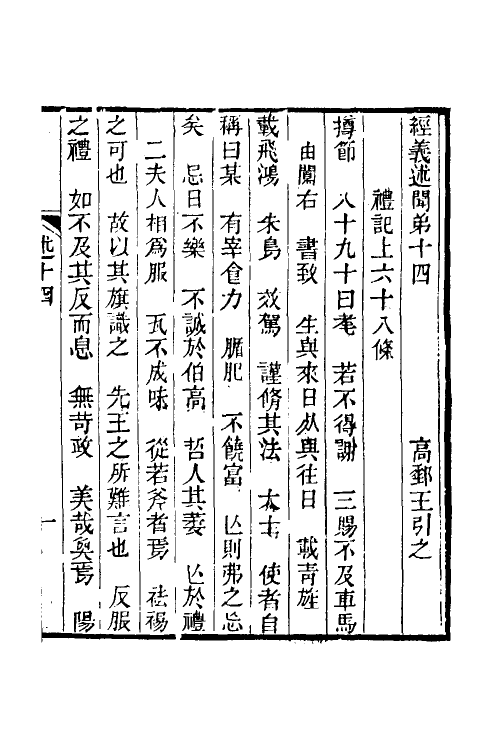 經義述聞弟十四　高郵王引之
禮記上六十八條
撙節　八十九十曰耄　若不得謝　三賜不及車馬
由闑右　書致　生與來日死與往日　載青旌
載飛鴻　朱鳥　效駕　謹脩其法　大士　使者自
稱曰某　有宰食力　腯肥　不饒富　亾則弗之忘
矣　忌日不樂　不誠於伯高　哲人其萎　亾於禮
二夫人相爲服　瓦不成味　從若斧者焉　祛裼
之可也　故以其旗識之　先王之所難言也　反服
之禮　如不及其反而息　無苛政　美哉奐焉　陽
述十四　一